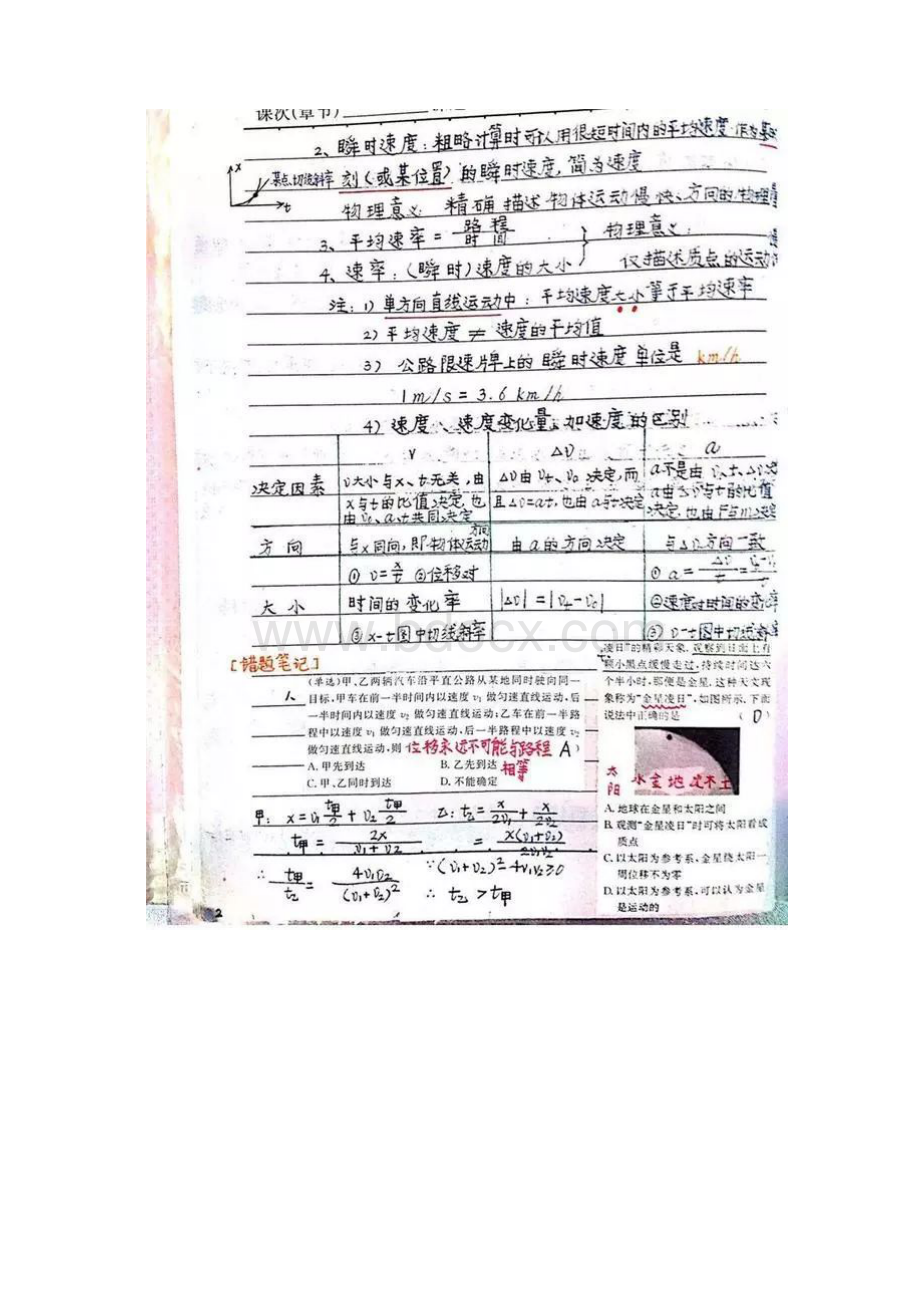 课次(章节)
2、瞬时速度：粗略计算时可以用很短时间内的平均速度作为某时
x
某点切线斜率
刻(或某位置)的瞬时速度，简为速度
t
物理意义：精确描述物体运动慢快、方向的物理量
3、平均速率=路程/时间
物理意义：
4、速率：(瞬时)速度的大小
仅描述质点的运动
注：1)单方向直线运动中：平均速度大小等于平均速率
2)平均速度≠速度的平均值
3)公路限速牌上的瞬时速度单位是 km/h
1m/s=3.6km/h
4)速度、速度变化量、加速度的区别
v ΔV a
决定因素
v大小与x、t无关，由
x与t的比值决定，也
由v₀、a、t共同决定
Δv由vt、v₀决定，而
且Δv=at，也由a与t决定
a不是由v、t、Δv决
a由Δv与t的比值
决定，也由F与m决定
方向
与x同向，即物体运动方向
由a的方向决定
与Δv方向一致
大小
① v=x/t ②位移对
时间的变化率
③x-t图中切线斜率
|Δv|=|vt-v₀|
① a=Δv/t=
②速度对时间的变化率
③v-t图中切线斜率
www.bdocx.com
[错题笔记]
(单选)甲、乙两辆汽车沿平直公路从某地同时驶向同一
目标，甲车在前一半时间内以速度v₁做匀速直线运动，后
一半时间内以速度v₂做匀速直线运动；乙车在前一半路
程中以速度v₁做匀速直线运动，后一半路程中以速度v₂
做匀速直线运动，则 A )
位移永远不可能与路程
相等
A.甲先到达 B.乙先到达
C.甲、乙同时到达 D.不能确定
甲：x=v₁t甲/2+v₂t甲/2 乙：t乙=x/2v₁+x/2v₂
t甲=2x/(v₁+v₂) =x(v₁+v₂)/2v₁v₂
∴ t甲/t乙=4v₁v₂/(v₁+v₂)² ∵(v₁+v₂)²-4v₁v₂≥0
∴ t乙>t甲
凌日”的精彩天象，观察到日面上有
颗小黑点缓慢走过，持续时间达六
个半小时，那便是金星，这种天文现
象称为“金星凌日”，如图所示，下面
说法中正确的是 ( D )
太阳
水金地
木土
A.地球在金星和太阳之间
B.观测“金星凌日”时可将太阳看成
质点
C.以太阳为参考系，金星绕太阳一
周位移不为零
D.以太阳为参考系，可以认为金星
是运动的
2